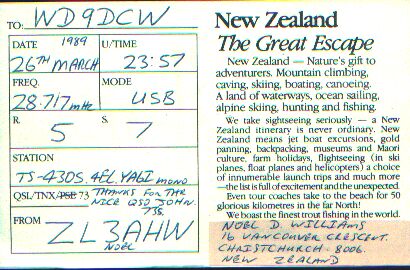 TO: WD9DCW
DATE 1989 U/TIME
26TH MARCH 23:57
FREQ. MODE
28.717 mHz USB
R. S.
5 7
STATION
TS-430S. 4EL YAGI mono
QSL/TNX/PSE 73 THANKS FOR THE
NICE QSO JOHN.
73s.
FROM ZL3AHW
NOEL
New Zealand
The Great Escape
New Zealand — Nature's gift to
adventurers. Mountain climbing,
caving, skiing, boating, canoeing.
A land of waterways, ocean sailing,
alpine skiing, hunting and fishing.
We take sightseeing seriously — a New
Zealand itinerary is never ordinary. New
Zealand means jet boat excursions, gold
panning, backpacking, museums and Maori
culture, farm holidays, flightseeing (in ski
planes, float planes and helicopters) a choice
of innumerable launch trips and much more
—the list is full of excitement and the unexpected.
Even your coaches take to the beach for 50
glorious kilometres in the far North!
We boast the finest trout fishing in the world.
NOEL D. WILLIAMS
16 VANCOUVER CRESCENT.
CHRISTCHURCH - 8006.
NEW ZEALAND